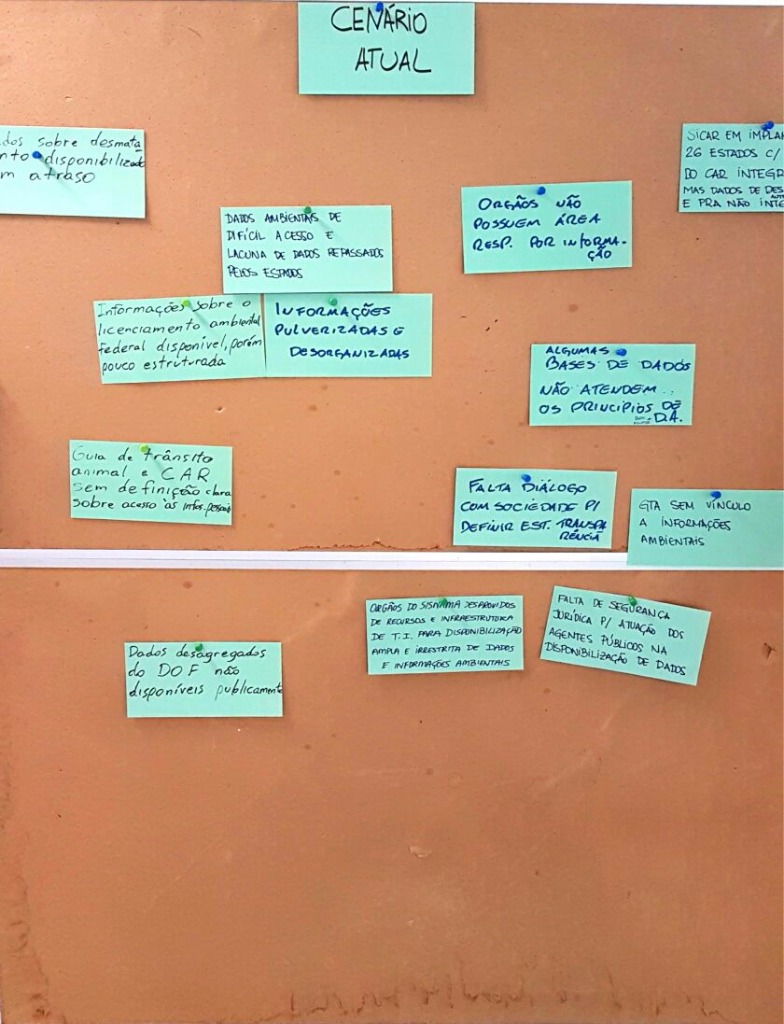 CENÁRIO
ATUAL
dos sobre desmata
nto disponibilizado
m atraso
SICAR EM IMPLAN
26 ESTADOS C/
DO CAR INTEGR
MAS DADOS DE DES
E PRA NÃO INTE
DADOS AMBIENTAIS DE
DIFÍCIL ACESSO E
LACUNA DE DADOS REPASSADOS
PELOS ESTADOS
ORGÃOS NÃO
POSSUEM ÁREA
RESP. POR INFORMA-
ÇÃO
Informações sobre o
licenciamento ambiental
federal disponível, porém
pouco estruturada
INFORMAÇÕES
PULVERIZADAS E
DESORGANIZADAS
ALGUMAS
BASES DE DADOS
NÃO ATENDEM
OS PRINCIPIOS DE
D.A.
Guia de trânsito
animal e CAR
sem definição clara
sobre acesso às infos. pessoais
FALTA DIÁLOGO
COM SOCIEDADE P/
DEFINIR EST. TRANSPA
RÊNCIA
GTA SEM VÍNCULO
A INFORMAÇÕES
AMBIENTAIS
ORGÃOS DO SISNAMA DESPROVIDOS
DE RECURSOS E INFRAESTRUTURA
DE T.I. PARA DISPONIBILIZAÇÃO
AMPLA E IRRESTRITA DE DADOS
E INFORMAÇÕES AMBIENTAIS
FALTA DE SEGURANÇA
JURÍDICA P/ ATUAÇÃO DOS
AGENTES PÚBLICOS NA
DISPONIBILIZAÇÃO DE DADOS
Dados desagregados
do DOF não
disponíveis publicamente